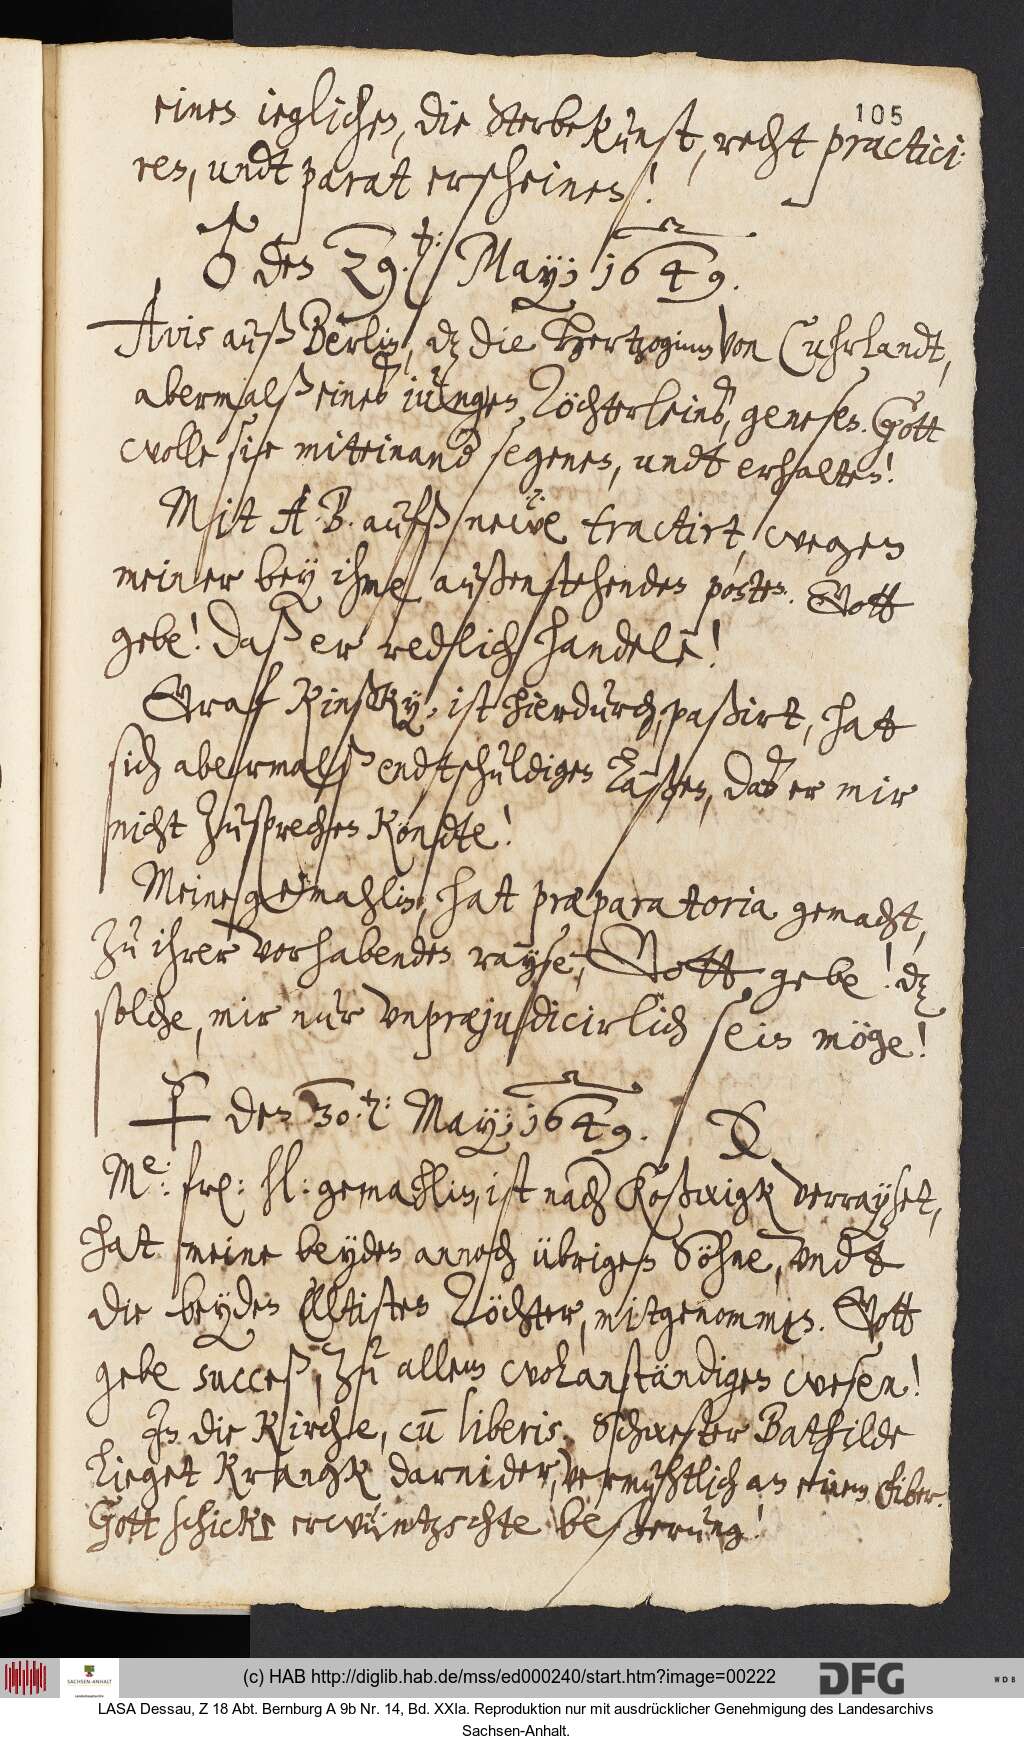 105
eines ieglichen, die Sterbekunst, recht practici-
ren, undt parat erscheinen!
♂ den 29.ten: May; 1649.
Avis auß Berlin, dz die Hertzoginn von Curhlandt,
abermalß eines jungen Töchterleins, genesen. Gott
wolle sie miteinand segenen, undt erhalten!
Mit A. B. aufß newe tractirt, wegen
meiner bey ihme außenstehenden posten. Gott
gebe! daß er redlich handele!
Graf Kinßky, ist hierdurch, paßirt, hat
sich abermalß endtschuldigen laßen, das er mir
nicht zusprechen köndte!
Meine gemahlin, hat præparatoria gemacht,
zu ihrer vorhabenden rayse, Gott gebe! dz
solche, mir nur unpræjudicirlich sein möge!
den 30.t: May; 1649.
Me: fre: hl: gemahlin, ist nach Koßwigk verrayset,
hat meine beyden annoch übrigen Söhne, undt
die beyden Elltisten Töchter, mitgenommen. Gott
gebe succeß, zu allem wolanständigen wesen!
In die Kirche, cū liberis. Schwester Bathilde
lieget kranck darnider, vermuhtlich an einem Fiber.
Gott schicke erwüntzschte beßerung!
(c) HAB http://diglib.hab.de/mss/ed000240/start.htm?image=00222
SACHSEN-ANHALT
DFG
WDB
LASA Dessau, Z 18 Abt. Bernburg A 9b Nr. 14, Bd. XXIa. Reproduktion nur mit ausdrücklicher Genehmigung des Landesarchivs
Sachsen-Anhalt.